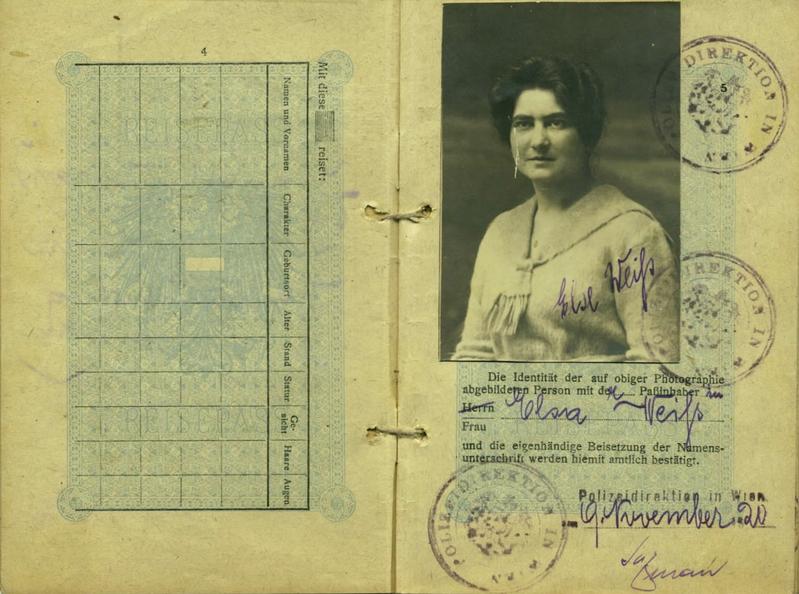 4
Mit diese reiset:
Namen und Vornamen
Charakter
Geburtsort
Alter
Stand
Statur
Ge-
sicht
Haare
Augen
REISEPASS
REISEPASS
5
POLIZEIDIREKTION IN WIEN
POLIZEIDIREKTION IN WIEN
Else Weiß
Die Identität der auf obiger Photographie
abgebildeten Person mit der Paßinhaber in
Herrn Elsa Weiß
Frau
und die eigenhändige Beisetzung der Namens-
unterschrift werden hiemit amtlich bestätigt.
Polizeidirektion in Wien
9. November 20
POLIZEIDIREKTION IN WIEN